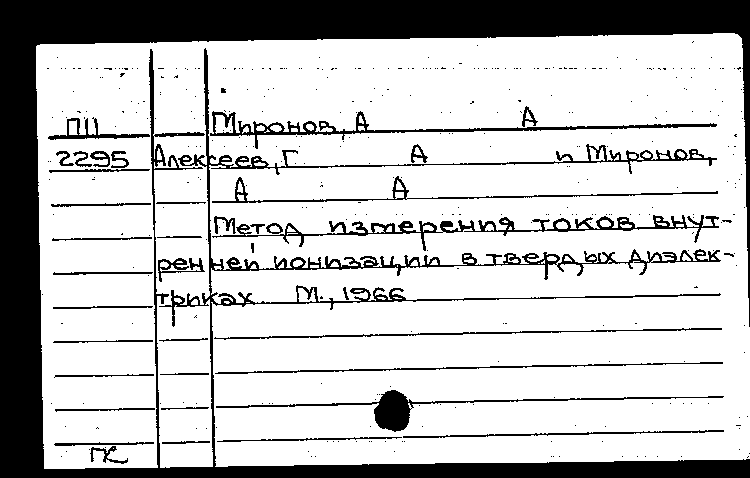 П11 Миронов, А А
2295 Алексеев, Г А и Миронов,
А А
Метод измерения токов внут-
ренней ионизации в твердых диэлек-
триках М., 1966
ГК